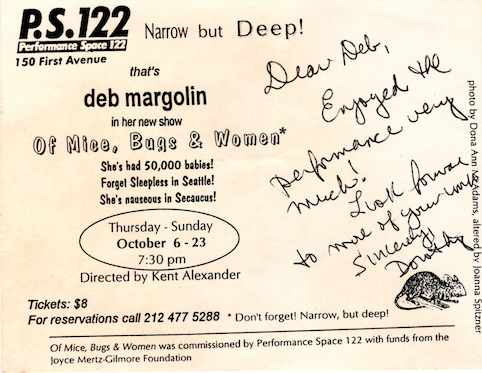 P.S.122
Performance Space 122
150 First Avenue
Narrow but Deep!
that's
deb margolin
in her new show
Of Mice, Bugs & Women*
She's had 50,000 babies!
Forget Sleepless in Seattle!
She's nauseous in Secaucus!
Thursday - Sunday
October 6 - 23
7:30 pm
Directed by Kent Alexander
Tickets: $8
For reservations call 212 477 5288 * Don't forget! Narrow, but deep!
Of Mice, Bugs & Women was commissioned by Performance Space 122 with funds from the
Joyce Mertz-Gilmore Foundation
Dear Deb,
Enjoyed the
performance very
much!
Look forward
to more of your work
Sincerely,
Dorothy
photo by Dona Ann McAdams, altered by Joanna Spitzner